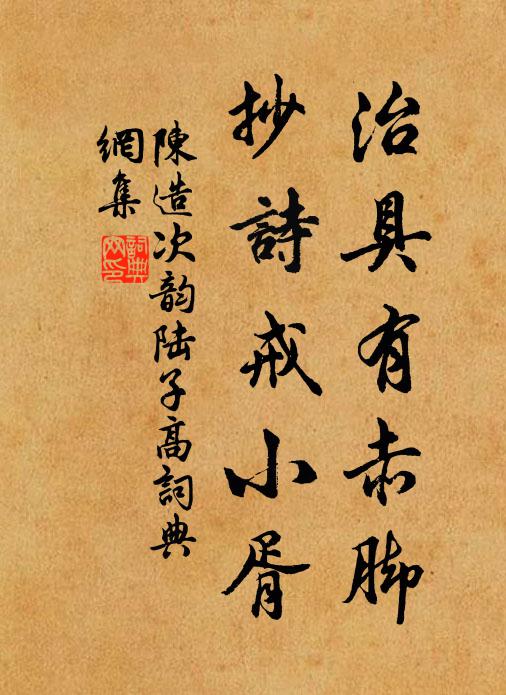 治具有赤脚
抄詩戒小胥
陳造次韵陆子高詞典
網集
詞典
网印